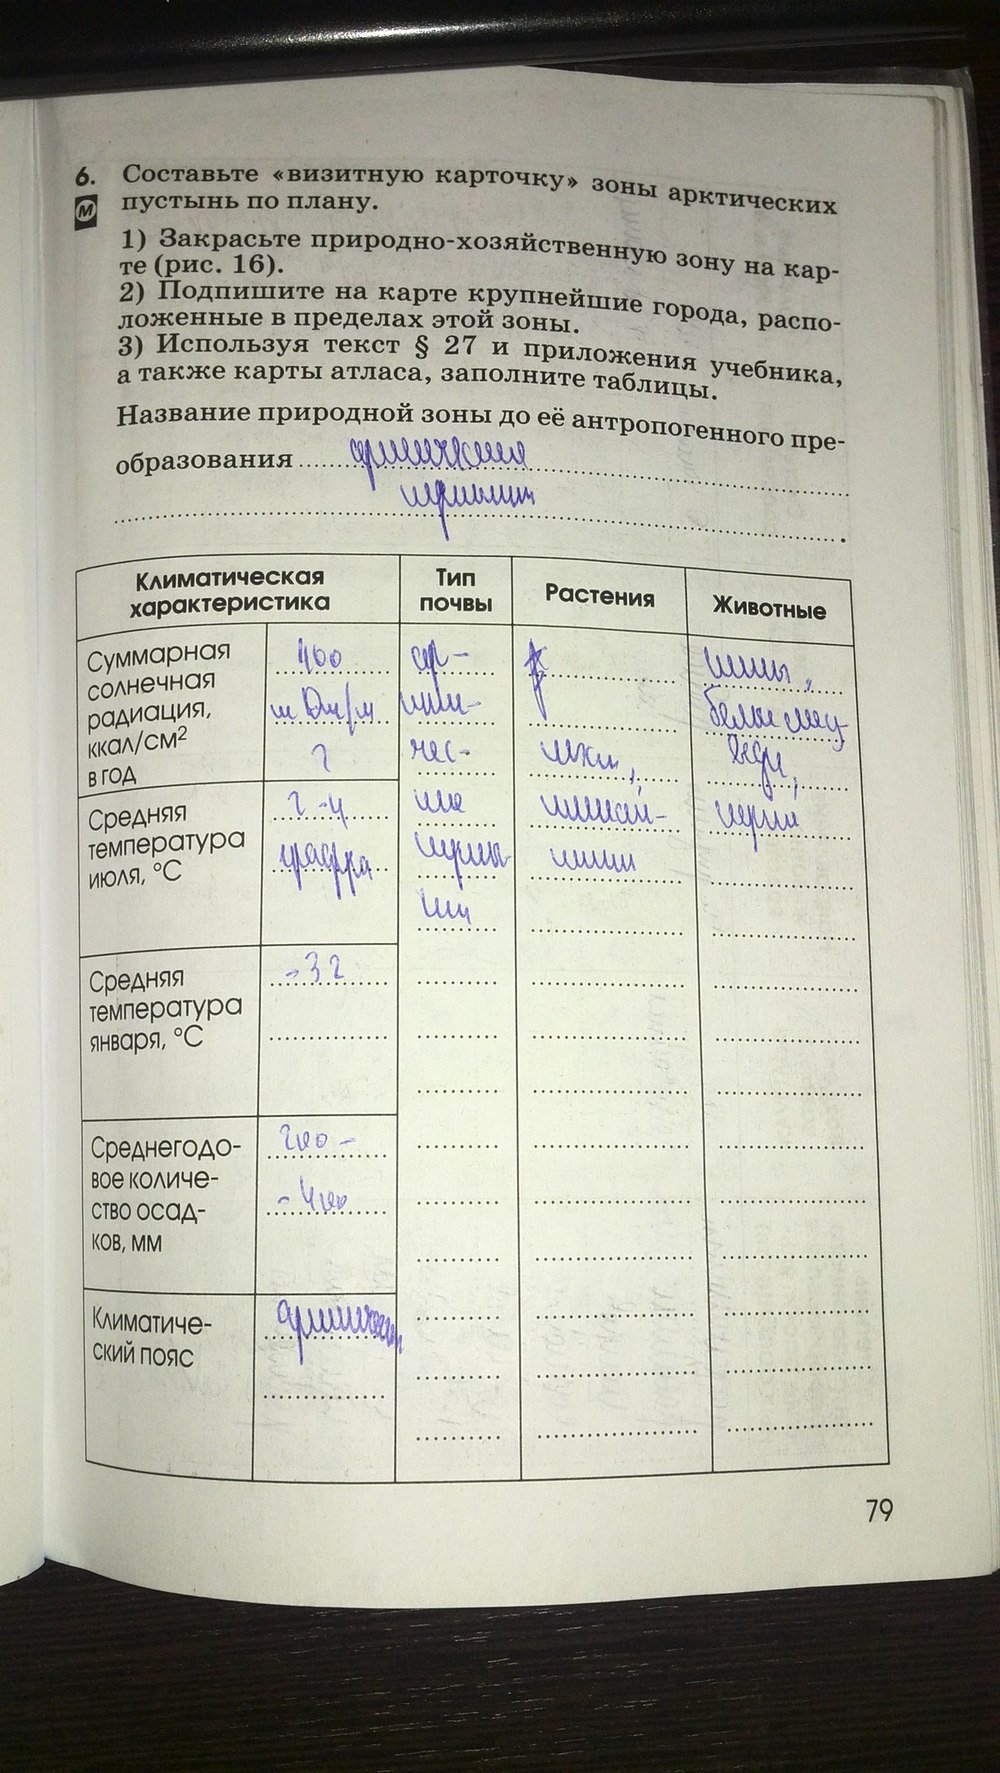 6. Составьте «визитную карточку» зоны арктических
М пустынь по плану.
1) Закрасьте природно-хозяйственную зону на кар-
те (рис. 16).
2) Подпишите на карте крупнейшие города, распо-
ложенные в пределах этой зоны.
3) Используя текст § 27 и приложения учебника,
а также карты атласа, заполните таблицы.
Название природной зоны до её антропогенного пре-
образования арктическая
пустыня
Климатическая
характеристика
Тип
почвы
Растения
Животные
Суммарная
солнечная
радиация,
ккал/см2
в год
400
2
Средняя
температура
июля, °С
2-4
градуса
Средняя
температура
января, °С
-32
Среднегодо-
вое количе-
ство осад-
ков, мм
200-
-400
Климатиче-
ский пояс
арктический
ар-
кти-
чес-
кие
пусты-
ни
мхи,
лишай-
ники
белые мед
веди,
79